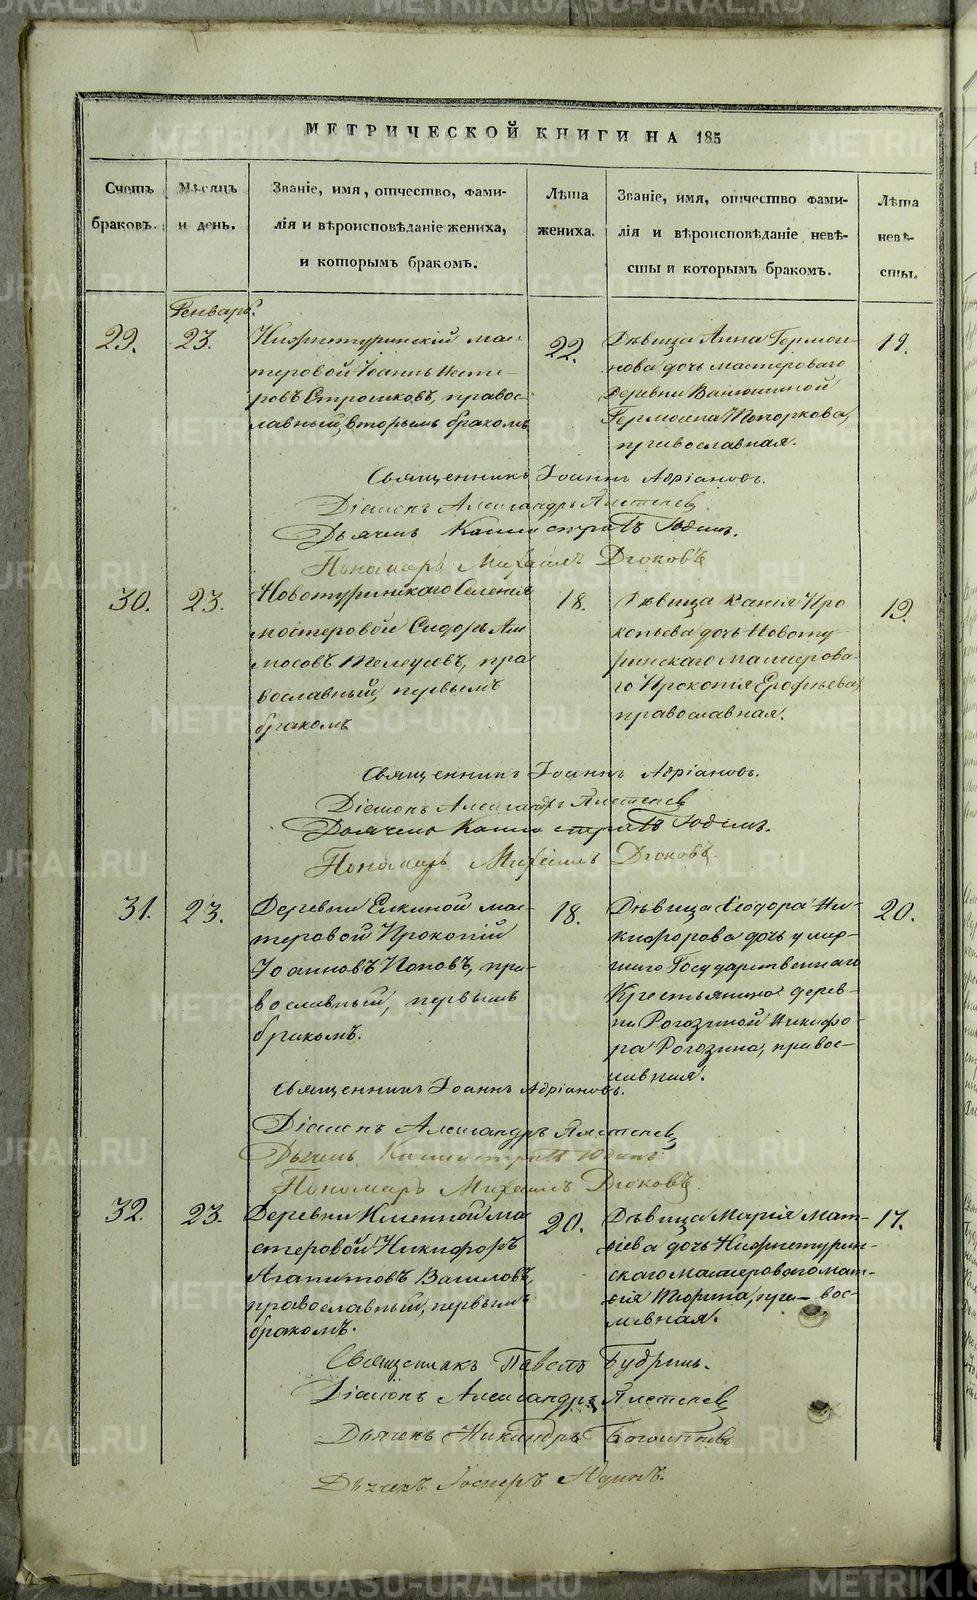 МЕТРИЧЕСКОЙ КНИГИ НА 185
Счетъ браковъ.
Мѣсяцъ и день.
Званіе, имя, отчество, фами-
лія и вѣроисповѣданіе жениха,
и которымъ бракомъ.
Лѣта жениха.
Званіе, имя, отчество фами-
лія и вѣроисповѣданіе невѣ-
сты и которымъ бракомъ.
Лѣта невѣ-
сты.
Генварь.
29.
23.
Нижнетуринскій мас-
теровой Іоаннъ
православный, вторымъ бракомъ
22.
Дѣвица Анна Гермоге-
нова дочь мастероваго
деревни
православная.
19.
Священникъ Іоаннъ Адріановъ.
Діаконъ Александръ
Дьячекъ Каллистратъ Юдинъ.
Пономарь Михаилъ Дюковъ
30.
23.
Новотуринскаго селенія
мастеровой Сидоръ Ам-
мосовъ Телеусовъ, пра
вославный, первымъ
бракомъ
18.
Дѣвица Про
копьева дочь Новоту-
ринскаго мастерова-
го Прокопія Ерофѣева,
православная.
19.
Священникъ Іоаннъ Адріановъ.
Діаконъ Александръ
Дьячекъ Каллистратъ Юдинъ.
Пономарь Михаилъ Дюковъ.
31.
23.
Деревни Елкиной мас-
теровой Прокопій
Іоанновъ Поповъ, пра-
вославный, первымъ
бракомъ.
18.
Дѣвица Ѳеодора Ни-
кифорова дочь умер-
шаго Государственнаго
Крестьянина дерев-
ни Рогозиной Никифо-
ра Рогозина, правос-
лавная.
20.
Священникъ Іоаннъ Адріановъ.
Діаконъ Александръ
Дьячекъ Каллистратъ Юдинъ
Пономарь Михаилъ Дюковъ.
32.
23.
Деревни Именной ма-
стеровой Никифоръ
Агапитовъ Вагиловъ,
православный, первымъ
бракомъ.
20.
Дѣвица Марія Мат-
ѳіева дочь Нижнетурин-
скаго мастероваго Мат-
ѳія Тюрина, пра- вос-
лавная.
17.
Священникъ Павелъ Будринъ.
Діаконъ Александръ
Дьячекъ Никандръ
Дьячекъ Юдинъ.
METRIKI.GASO-URAL.RU